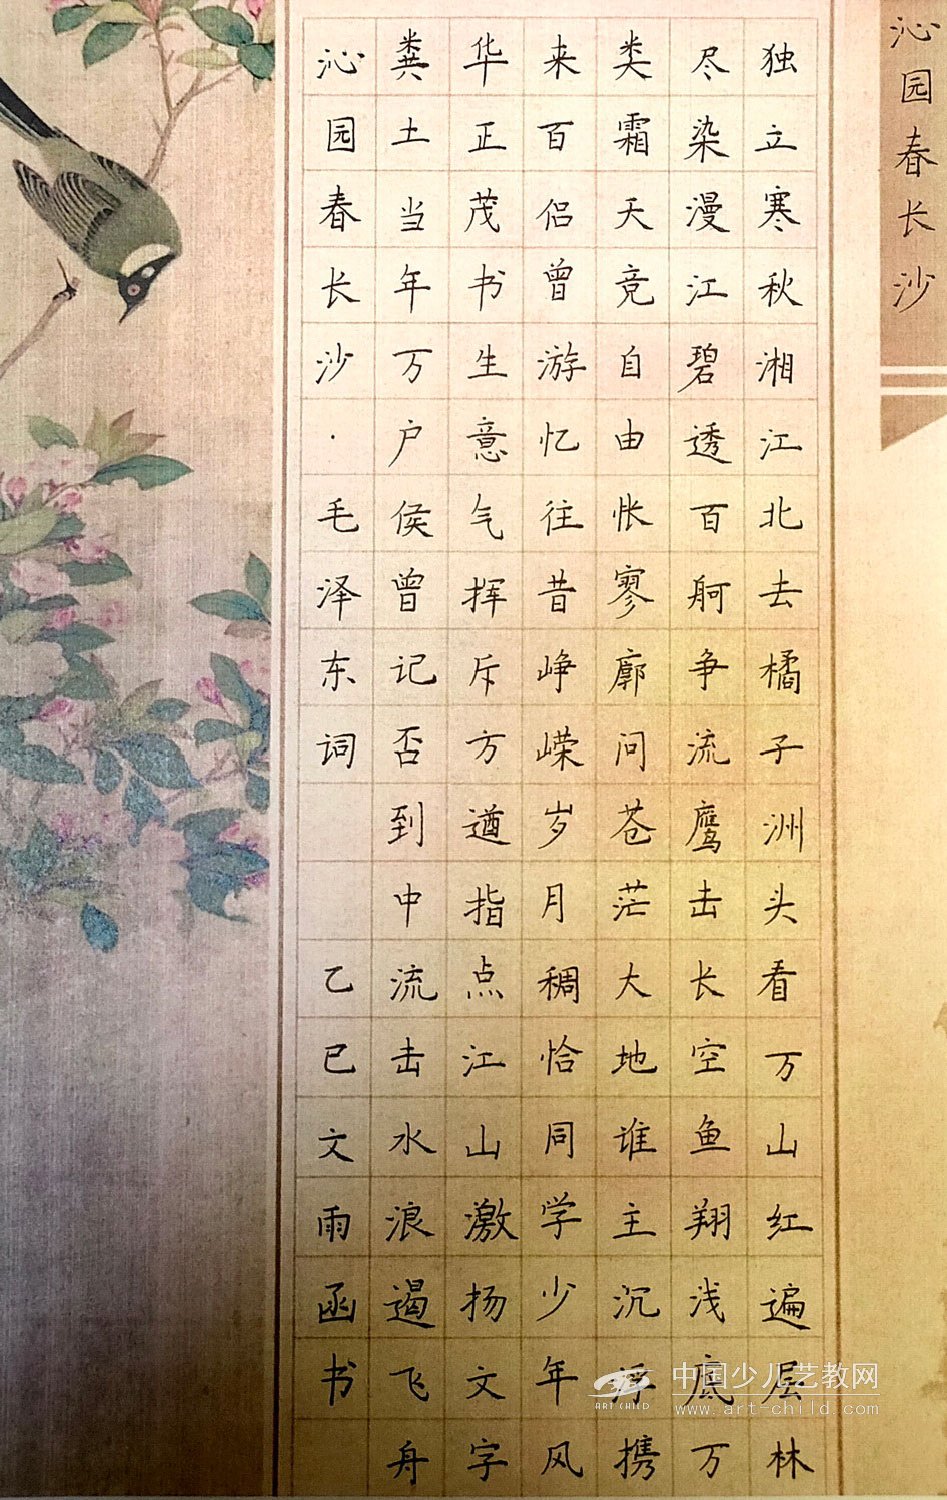 沁园春长沙
独立寒秋湘江北去橘子洲头看万山红遍层林
尽染漫江碧透百舸争流鹰击长空鱼翔浅底万
类霜天竞自由怅寥廓问苍茫大地谁主沉浮携
来百侣曾游忆往昔峥嵘岁月稠恰同学少年风
华正茂书生意气挥斥方遒指点江山激扬文字
粪土当年万户侯曾记否到中流击水浪遏飞舟
沁园春长沙·毛泽东词 乙巳文雨函书
中国少儿艺教网
ART CHILD
www.art-child.com